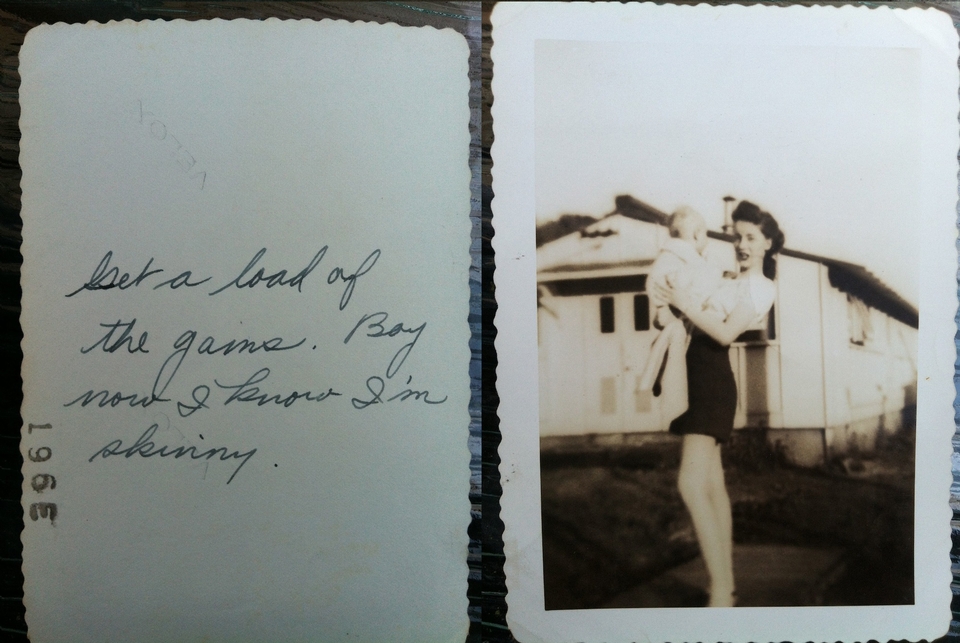 VELOX
Get a load of
the gams. Boy
now I know I'm
skinny.